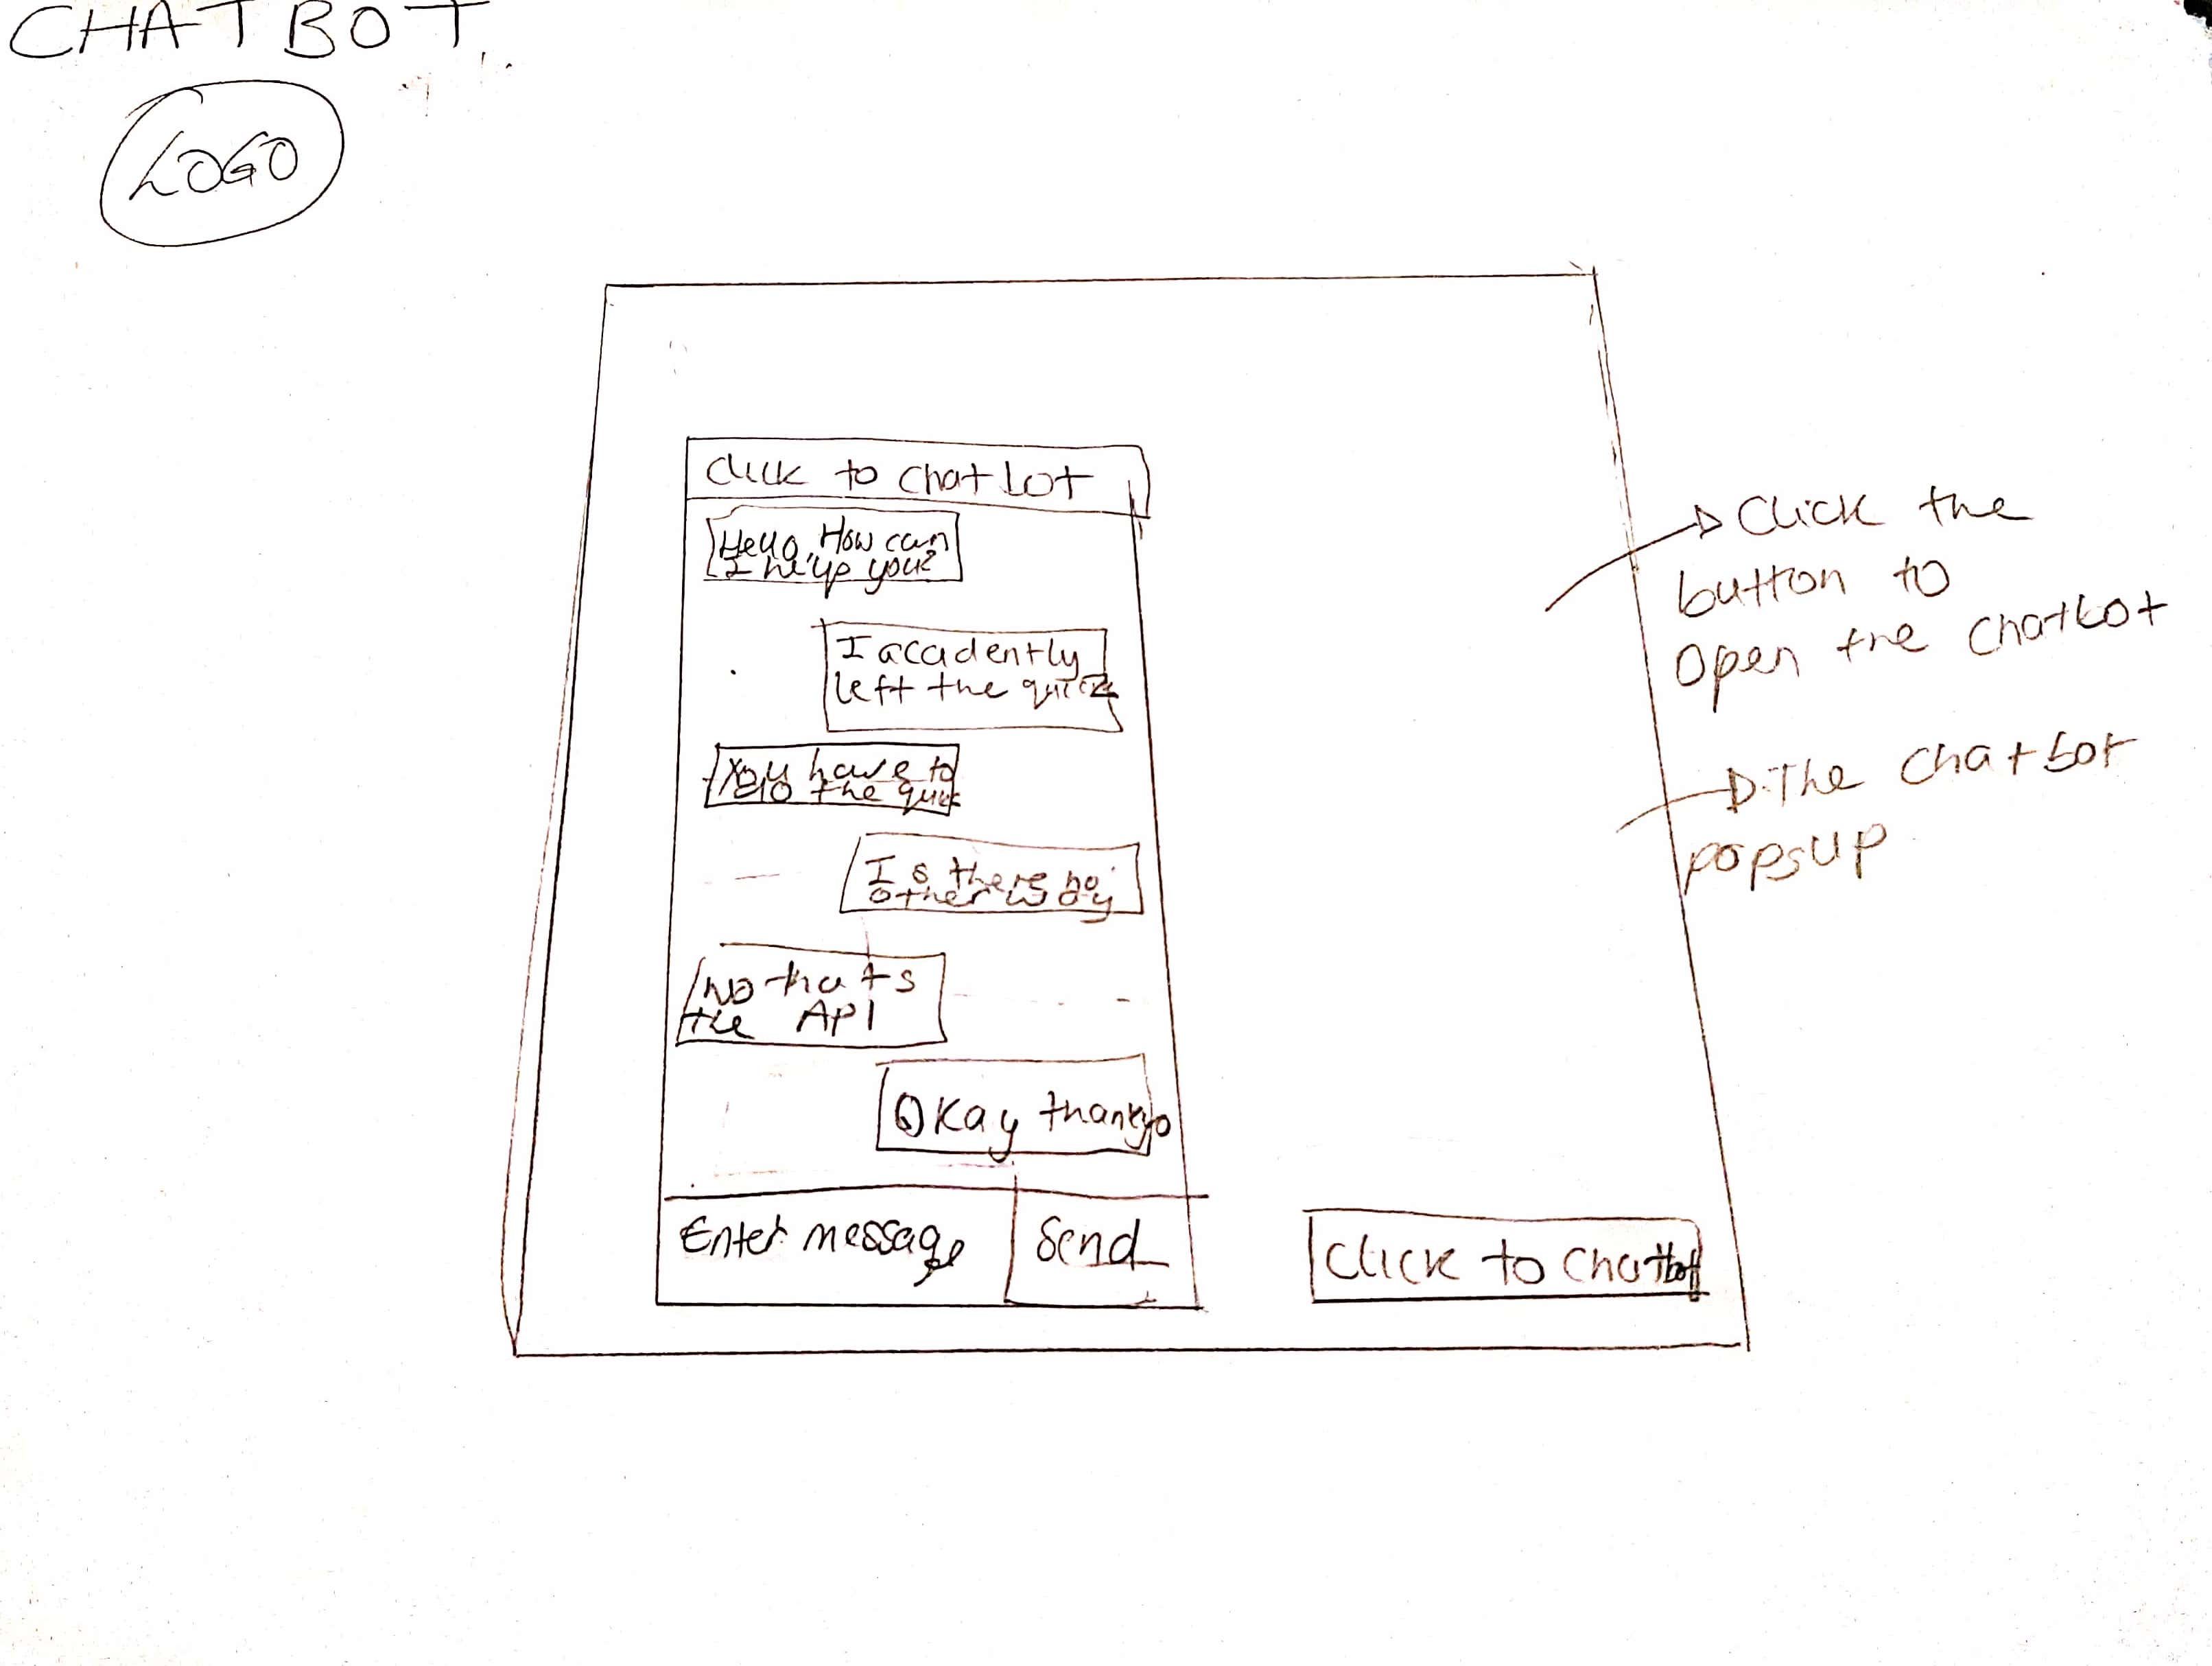 CHATBOT
LOGO
Click to chatbot
Hello, How can
I help you?
I accadently
left the
You have to
the
Is there no
other way
No thats
the API
Okay
Enter message
Send
Click to Chatbot
Click the
button to
Open the Chatbot
The Chatbot
popsup